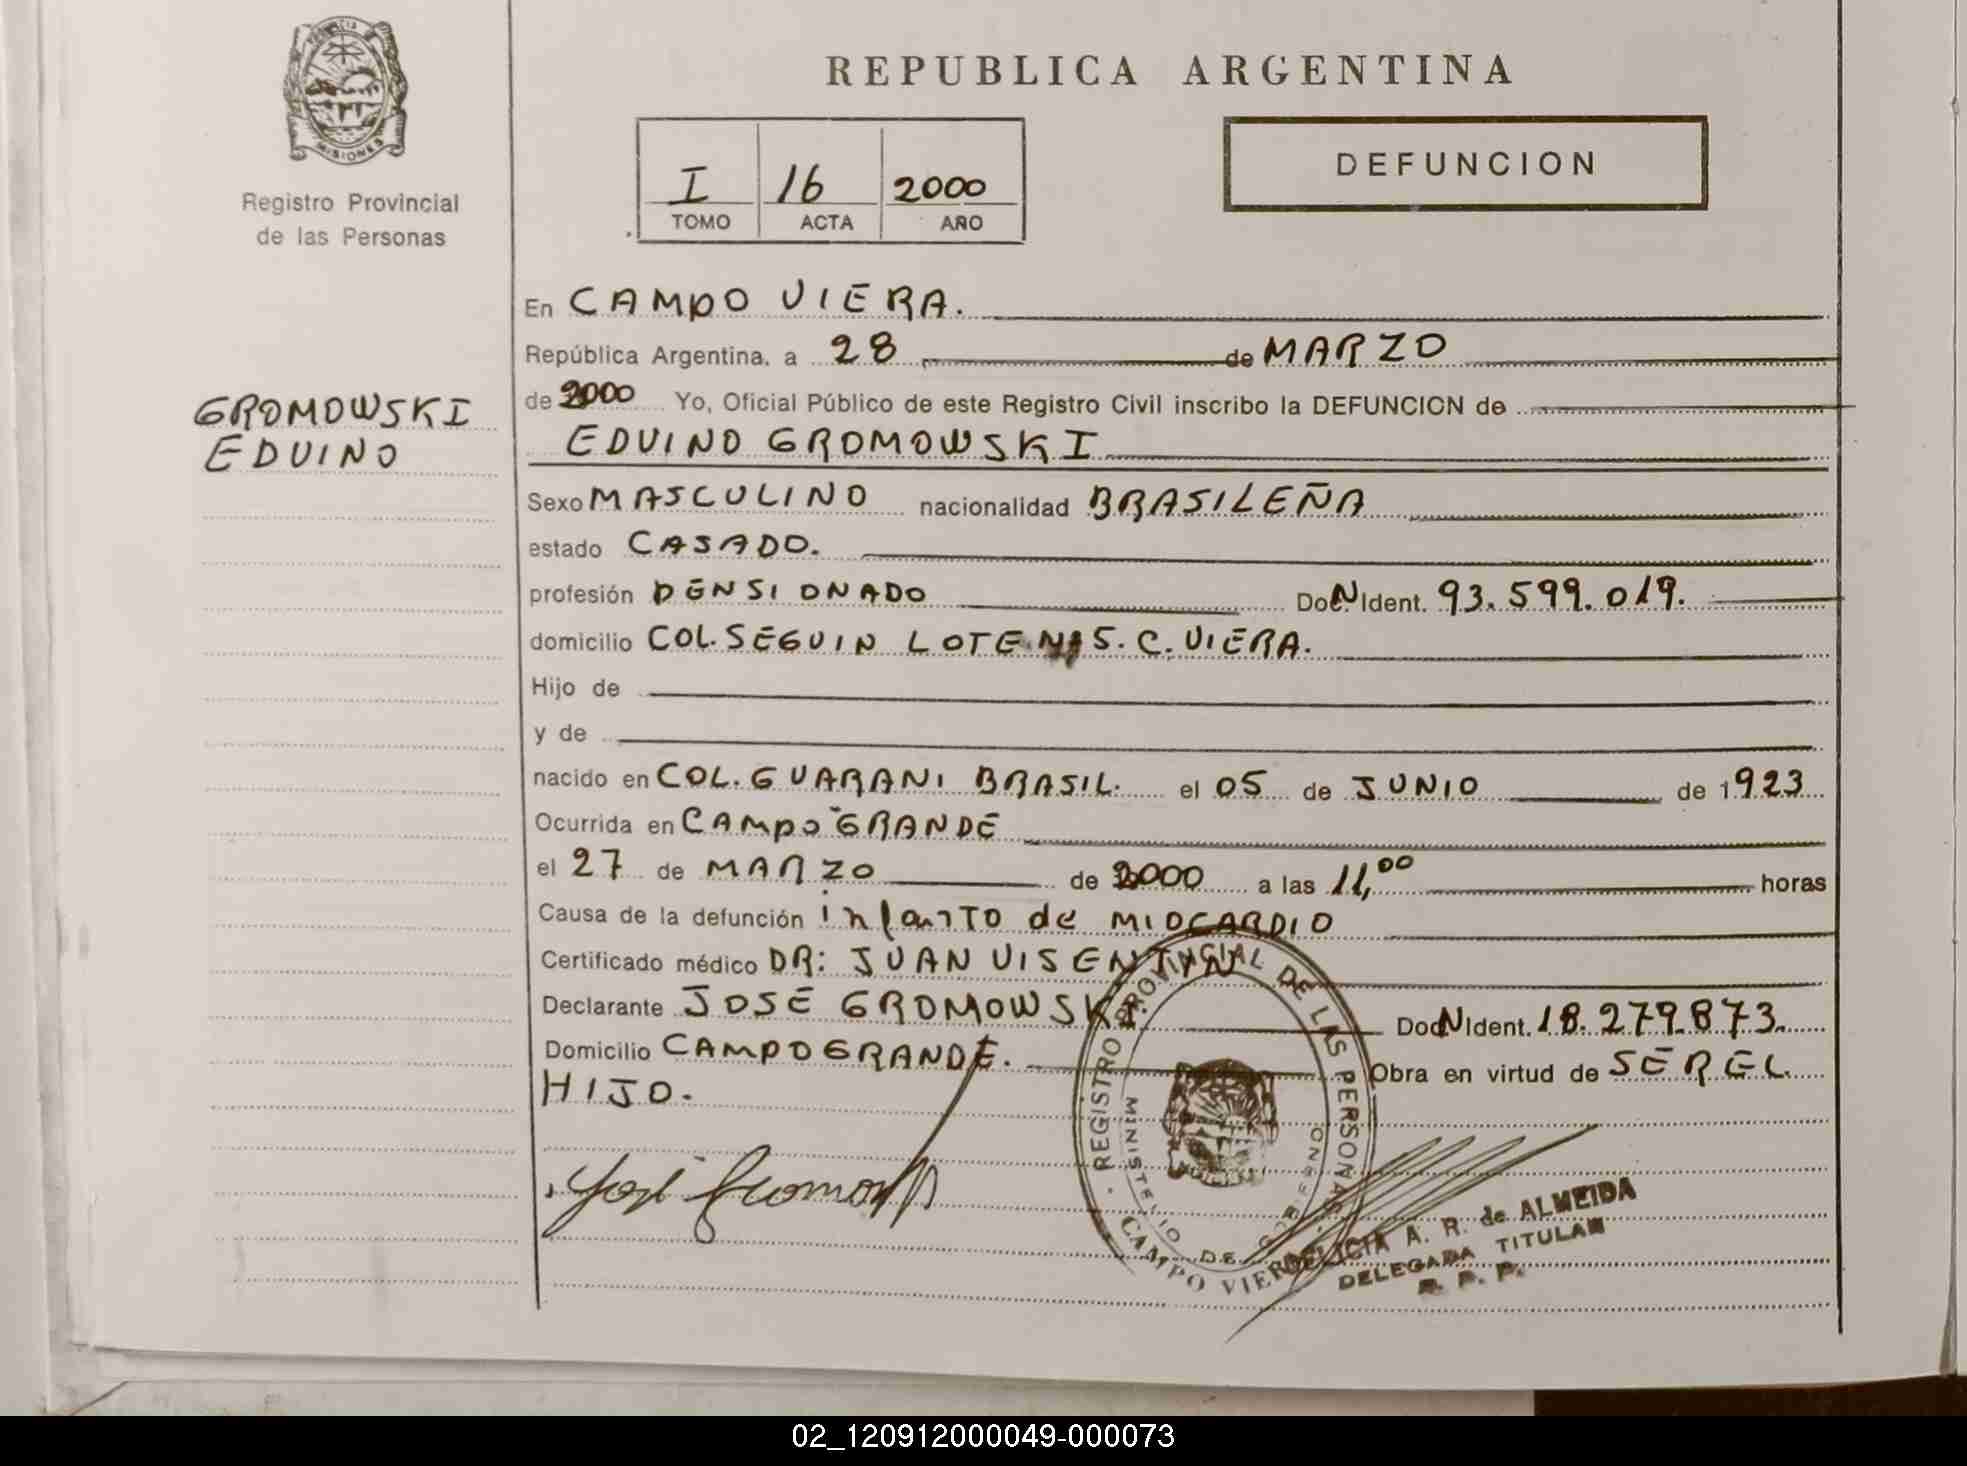 PROVINCIA DE
MISIONES
Registro Provincial
de las Personas
REPUBLICA ARGENTINA
I 16 2000
TOMO ACTA AÑO
DEFUNCION
GROMOWSKI
EDUINO
En CAMPO VIERA.
República Argentina, a 28 de MARZO
de 2000 Yo, Oficial Público de este Registro Civil inscribo la DEFUNCION de
EDUINO GROMOWSKI
Sexo MASCULINO nacionalidad BRASILEÑA
estado CASADO.
profesión PENSIONADO Doc N Ident. 93.599.019.
domicilio COL. SEGUIN LOTE 5. C. VIERA.
Hijo de
y de
nacido en COL. GUARANI BRASIL. el 05 de JUNIO de 1923
Ocurrida en CAMPO GRANDE
el 27 de MARZO de 2000 a las 11,00 horas
Causa de la defunción infarTO de MIOCARDIO
Certificado médico DR: JUAN VISENTIN
Declarante JOSE GROMOWSKI Doc N Ident. 18.279.873.
Domicilio CAMPO GRANDE. Obra en virtud de SER EL
HIJO.
José Gromowski
REGISTRO PROVINCIAL DE LAS PERSONAS
MINISTERIO DE GOBIERNO
CAMPO VIERA
DELICIA A. R. de ALMEIDA
DELEGADA TITULAR
R. P. P.
02_120912000049-000073